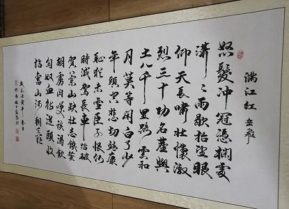 满江红 岳飛
怒髮冲冠憑欄處
瀟瀟雨歇抬望眼
仰天長嘯壯懷激
烈三十功名塵與
土八千里路雲和
月莫等闲白了少
年頭空悲切靖康
恥猶未雪臣子恨何
時滅駕長車踏破
賀蘭山缺壯志飢餐
胡虜肉笑談渴飲
匈奴血待從頭收
拾舊山河朝天闕